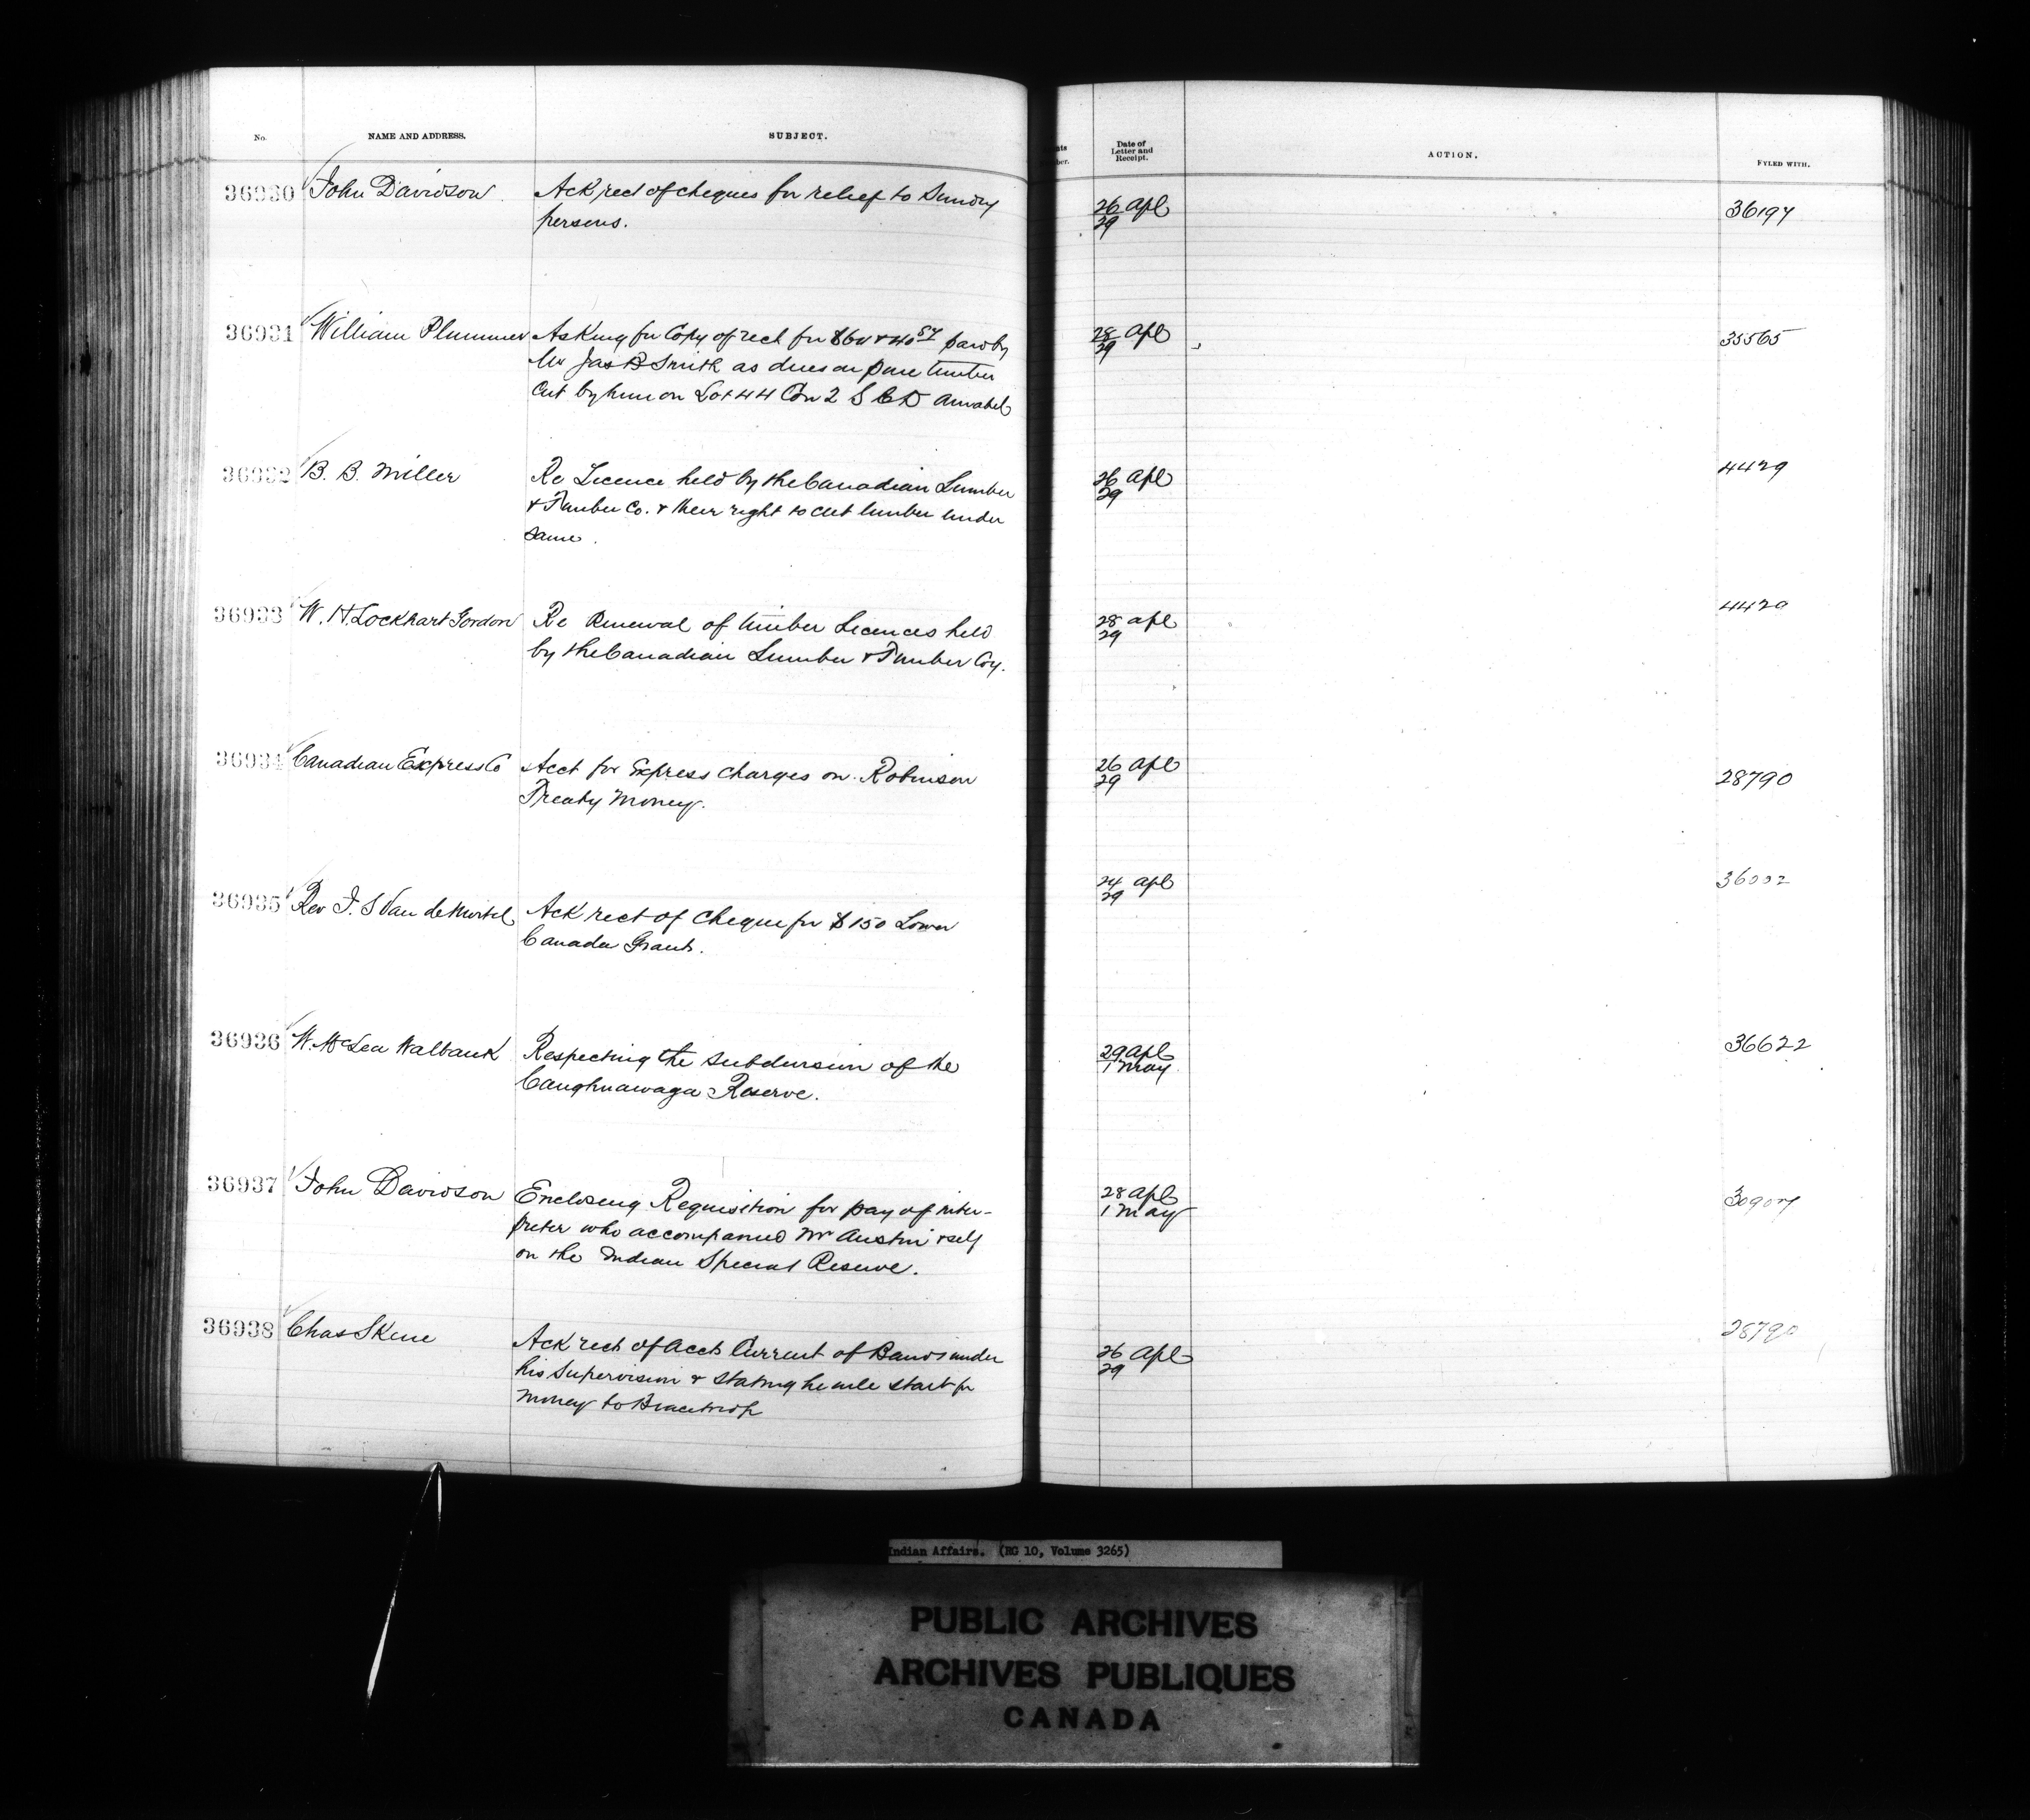 No.
NAME AND ADDRESS.
SUBJECT.
Date of
Letter and
Receipt.
ACTION.
FYLED WITH.
36930
John Davidson
Ack rect of cheques for relief to Sundry
persons.
26 Apl
29
36197
36931
William Plummer
Asking for Copy of rect for
by
Mr Jas B Smith as dues on pine timber
Cut by him on Lot 44 Con 2 S C D Amabel
28 Apl
29
35565
36932
B. B. Miller
Re Licence held by the Canadian Lumber
& Timber Co. & their right to cut timber under
same.
26 Apl
29
4429
36933
W. H. Lockhart Gordon
Re Renewal of timber Licences held
by the Canadian Lumber & Timber Coy.
28 Apl
29
4429
36934
Canadian Express Co
Acct for Express charges on Robinson
Treaty Money.
26 Apl
29
28790
36935
Rev
Ack rect of Cheque for $150 Lower
Canada Grant.
24 Apl
29
36002
36936
W. McLea Walbank
Respecting the subdivision of the
Caughnawaga Reserve.
29 Apl
1 May
36622
36937
John Davidson
Enclosing Requisition for pay of inter-
preter who accompanied Mr Austin & self
on the Indian Special Reserve.
28 Apl
1 May
36938
Chas Skene
Ack rect of Accts Current of Bands under
his Supervision & stating he will start for
Money to
26 Apl
29
28790
Indian Affairs. (RG 10, Volume 3265)
PUBLIC ARCHIVES
ARCHIVES PUBLIQUES
CANADA